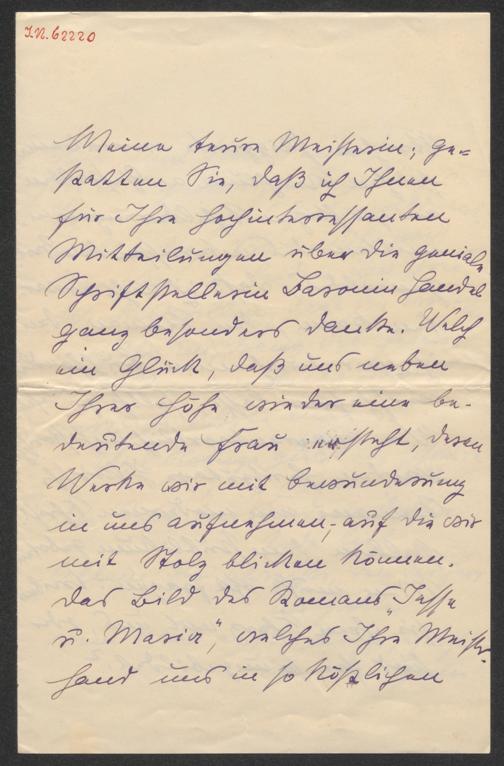 I.N. 62220
Meine teure Meisterin; ge=
statten Sie, daß ich Ihnen
für Ihre hochinteressanten
Mitteilungen über die geniale
Schriftstellerin Baronin Handel
ganz besonders danke. Welch
ein Glück, daß uns neben
Ihrer Höhe wieder eine be-
deutende Frau ersteht, deren
Werke wir mit Bewunderung
in uns aufnehmen, auf die wir
mit Stolz blicken können.
Das Bild des Romans „Jesse
u. Maria", welches Ihre Meister-
hand uns in so köstlichen